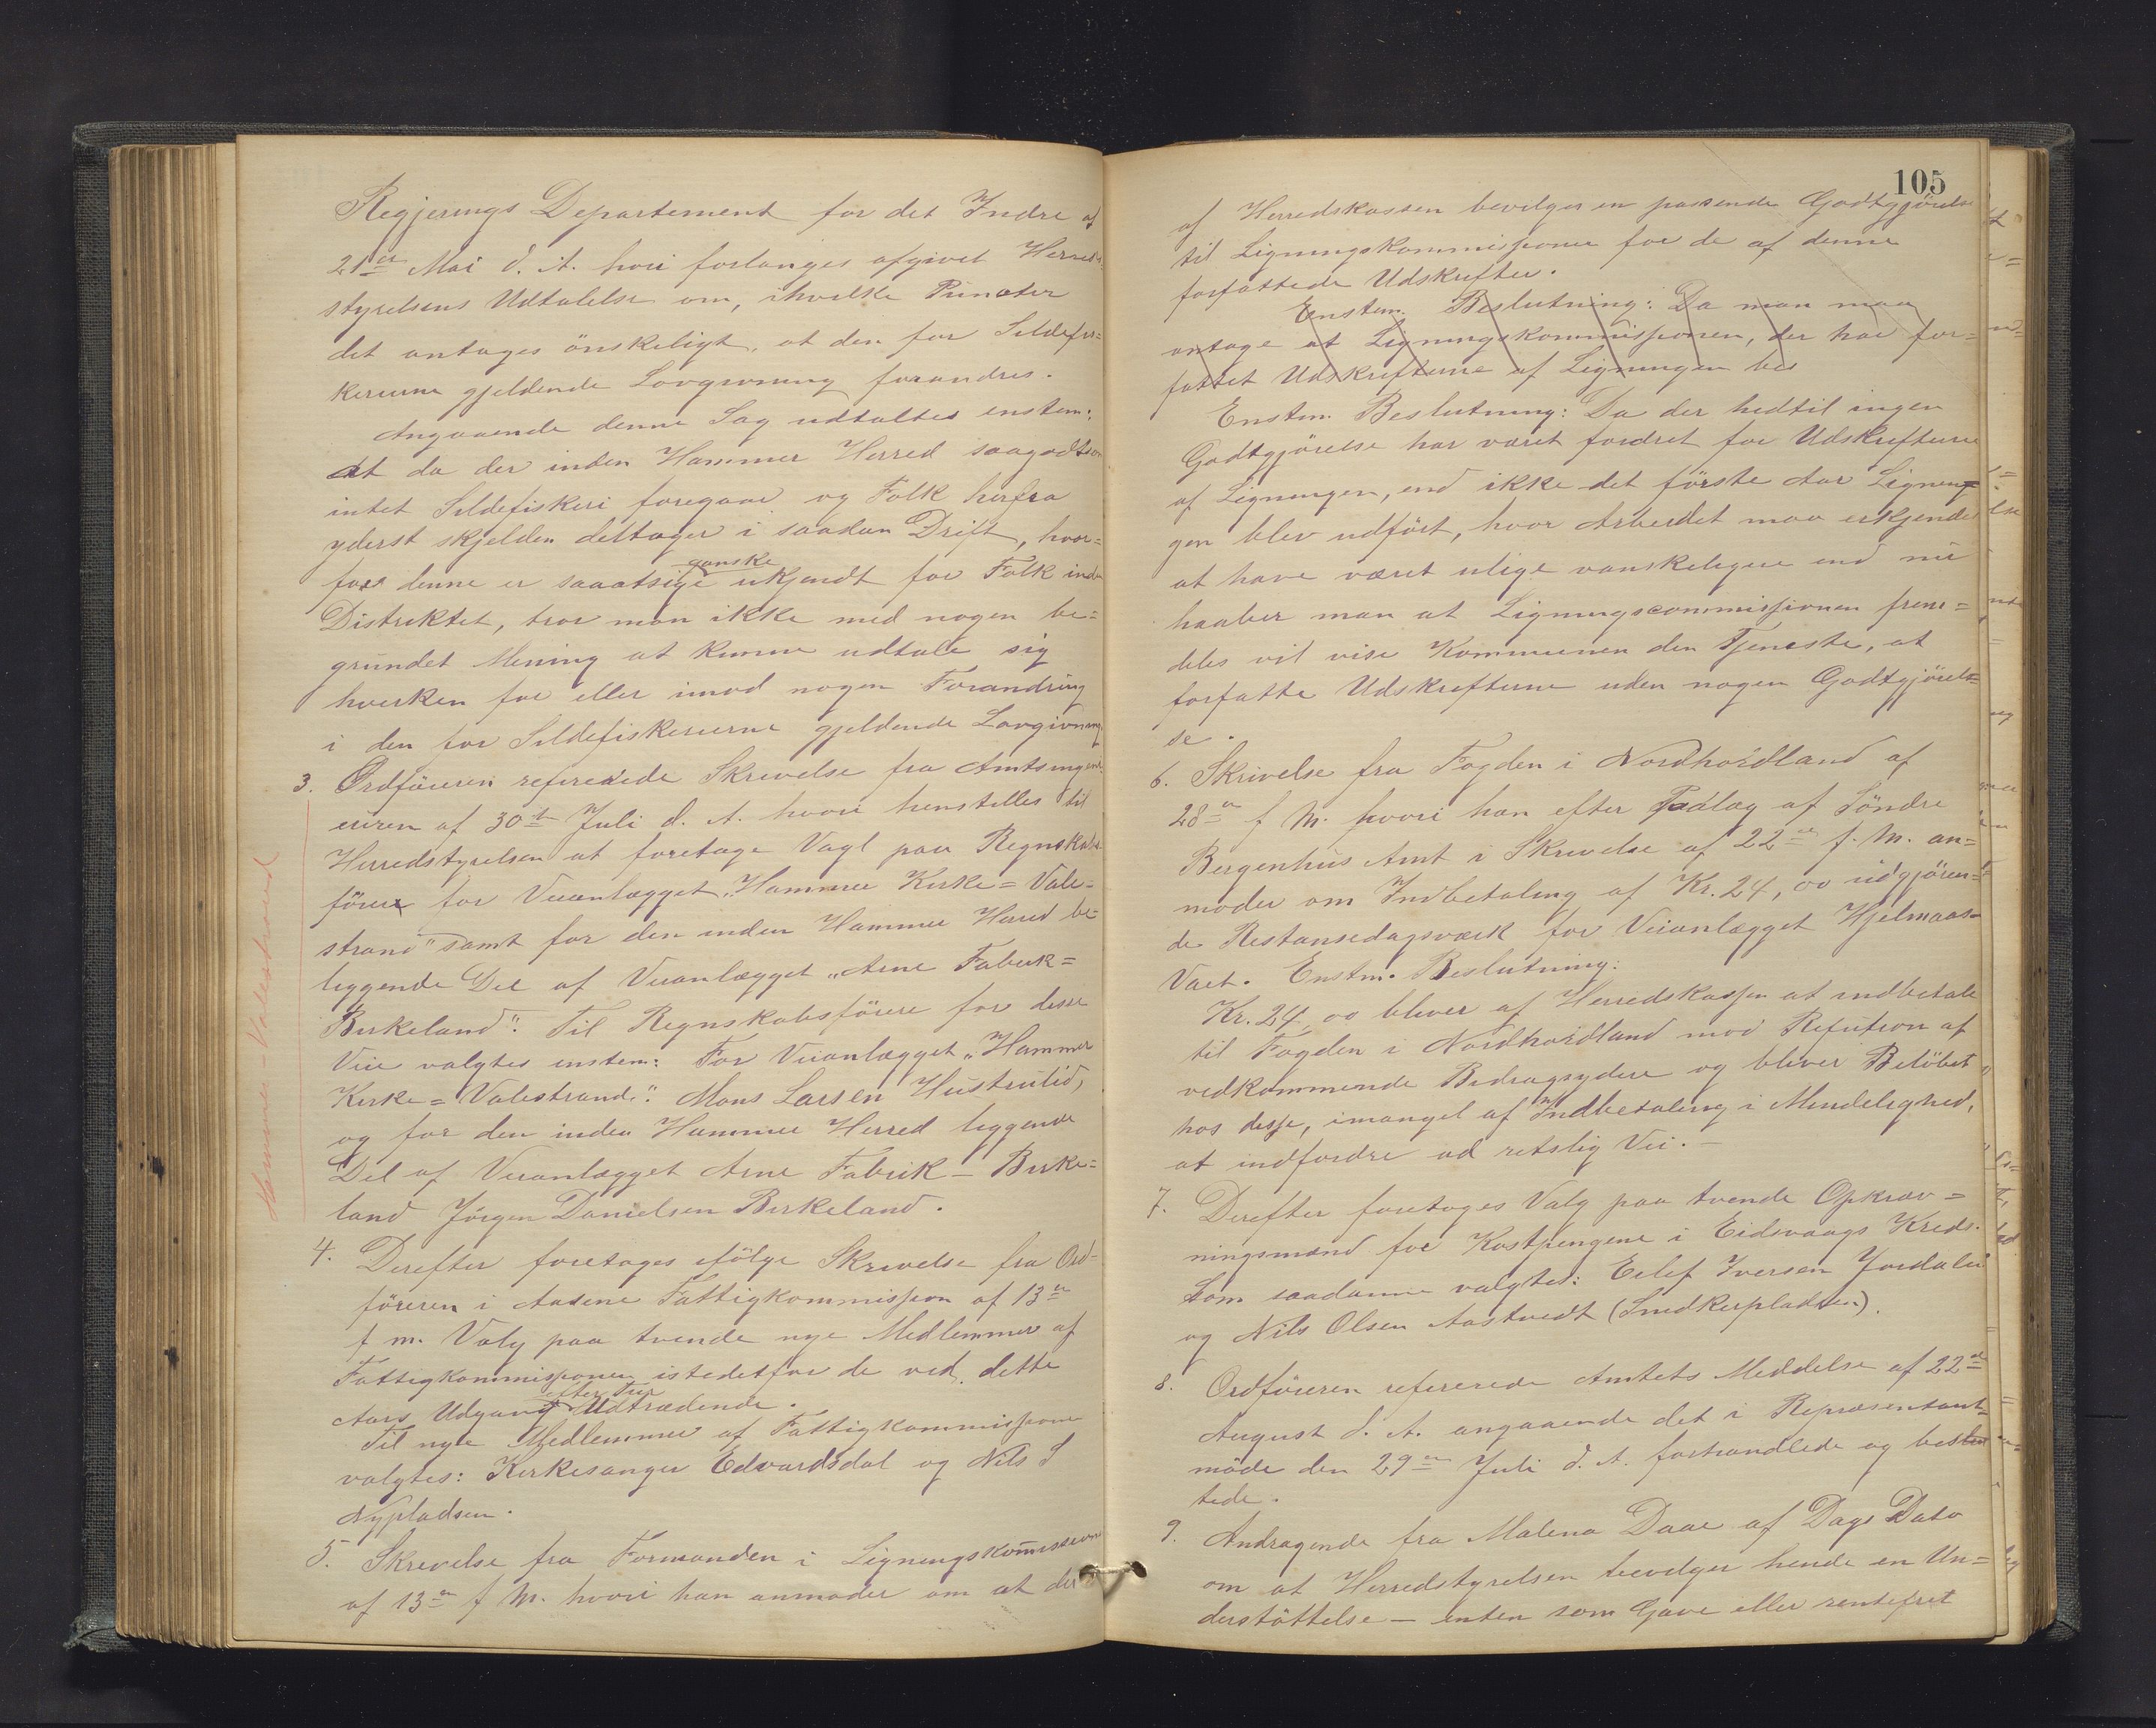 Regjerings Departement for det Indre af
21de Mai d. A. hvori forlanges afgivet Herreds
styrelsens Udtalelse om, ihvilke Puncter
det antages önskeligt, at den for Sildefis=
kerierne gjeldende Lovgivning forandres.
Angaaende denne Sag udtaltes enstem:
At da der inden Hammer Herred saagodtsom
intet Sildefiskeri foregaar og Folk herfra
yderst skjelden deltager i saadan Drift, hvor=
ganske
for denne er saaatsige ukjendt for Folk inden
Distriktet, tror man ikke med nogen be=
grundet Mening at kunne udtale sig
hverken for eller imod nogen Forandring
i den for Sildefiskerierne gjeldende Lovgivning
3. Ordföreren refererede Skrivelse fra Amtsingeni
euren af 30te Juli d. A. hvori henstilles til
Herredstyrelsen at foretage Valg paa Regnskabs
förer for Veianlægget "Hammer Kirke = Vale=
strand" samt for den inden Hammer Herred be=
liggende Del af Veianlægget "Arne Fabrik=
Birkeland". Til Regnskabsförere for disse
Veie valgtes enstem: For Veianlægget "Hammer
Kirke = Valestrand": Mons Larsen Hustrulid,
og for den inden Hammer Herred liggende
Del af Veianlægget Arne Fabrik - Birke=
land Jörgen Danielsen Birkeland.
Hammer - Valestrand
4. Derefter foretages ifölge Skrivelse fra Ord-
föreren i Aasene Fattigkommission af 13de
f m. Valg paa tvende nye Medlemmer af
Fattigkommissionen istedetfor de ved dette
efter Tur
Aars Udgang Udtrædende.
Til nye Medlemmer af Fattigkommissionen
valgtes: Kirkesanger Edvardsdal og Nils J
Nypladsen.
5. Skrivelse fra Formanden i Ligningskommissionen
af 13de f M. hvori han anmoder om at der
105
af Herredskassen bevilges en passende Godtgjörelse
til Ligningskommissionen for de af denne
forfattede Udskrifter.
Enstem. Beslutning: Da man maa
antage at Ligningskommissionen, der har for=
fattet Udskrifterne af Ligningen bes
Enstm. Beslutning: Da der hidtil ingen
Godtgjörelse har været fordret for Udskrifterne
af Ligningen, end ikke det förste Aar Lignin=
gen blev udfört, hvor Arbeidet maa erkjendes
at have været ulige vanskeligere end nu
haaber man at Ligningscommissionen frem=
deles vil vise Kommunen den Tjeneste, at
forfatte Udskrifterne uden nogen Godtgjörel=
se.
6. Skrivelse fra Fogden i Nordhordland af
28de f M. hvori han efter Paalæg af Söndre
Bergenhus Amt i Skrivelse af 22de f. M. an=
moder om Indbetaling af Kr. 24,00 udgjören=
de Restansedagsværk for Veianlægget Hjelmaas=
Vaet. Enstm. Beslutning:
Kr. 24,00 bliver af Herredskassen at indbetale
til Fogden i Nordhordland mod Refusion af
vedkommende Bidragsydere og bliver Belöbet
hos disse, imangel af Indbetaling i Mindelighed,
at indfordre ad retslig Vei. -
7. Derefter foretages Valg paa tvende Opkræv=
ningsmænd for Kostpengene i Eidsvaags Kreds.
Som saadanne valgtes: Eilef Iversen Jordalen
og Nils Olsen Aastvedt (Snedkerpladsen).
8. Ordföreren refererede Amtets Meddelse af 22de
August d. A. angaaende det i Repræsentant=
möde den 29de Juli d. A. forhandlede og beslut
tede.
9. Andragende fra Malena Daae af Dags Dato
om at Herredstyrelsen bevilger hende en Un=
derstöttelse - enten som Gave eller rentefrit